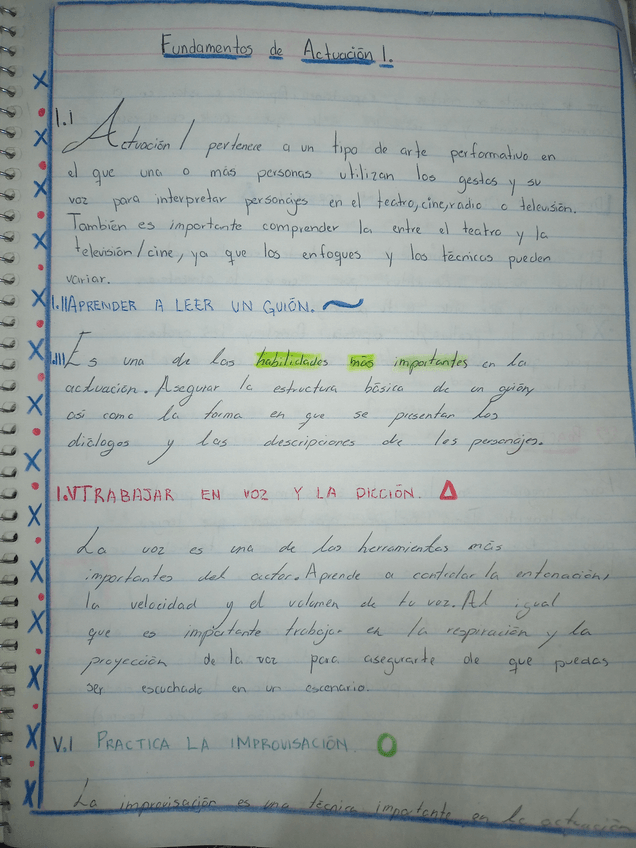 Fundamentos de Actuación I.
I.I
Actuación / pertenece a un tipo de arte performativo en
el que una o más personas utilizan los gestos y su
voz para interpretar personajes en el teatro, cine, radio o televisión.
También es importante comprender la entre el teatro y la
televisión / cine, ya que los enfoques y los técnicas pueden
variar.
I.II APRENDER A LEER UN GUIÓN.
I.III Es una de las habilidades más importantes en la
actuación. Asegurar la estructura básica de un guión,
asi como la forma en que se presentan los
diálogos y las descripciones de los personajes.
I.V TRABAJAR EN VOZ Y LA DICCIÓN.
La voz es una de las herramientas más
importantes del actor. Aprende a controlar la entonación,
la velocidad y el volumen de tu voz. Al igual
que es importante trabajar en la respiración y la
proyección de la voz para asegurarte de que puedas
ser escuchado en un escenario.
V.I PRACTICA LA IMPROVISACIÓN.
La improvisación es una técnica importante en la actuación